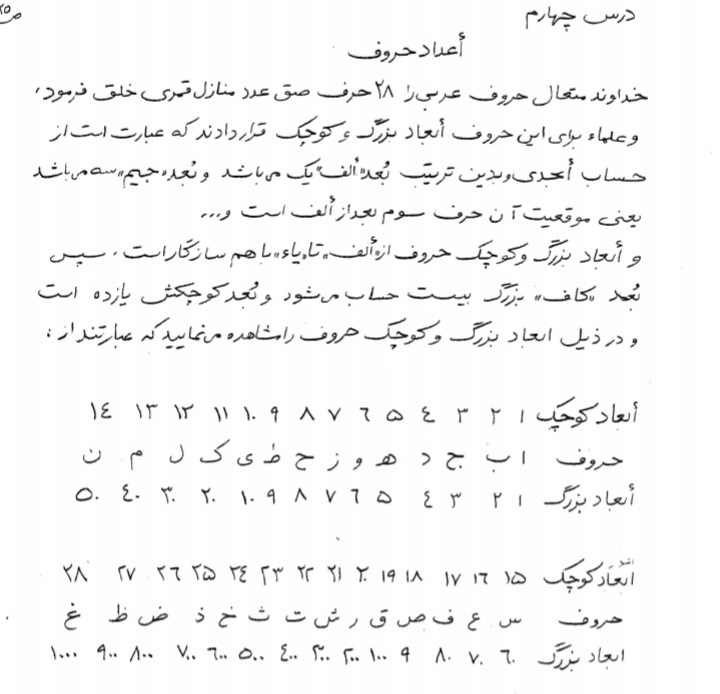 ص ۲۵
درس چهارم
أعداد حروف
خداوند متعال حروف عربی را ۲۸ حرف صق عدد منازل قمری خلق فرمود،
و علماء برای این حروف أبعاد بزرگ و کوچک قرار دادند که عبارت است از
حساب أبجدی و بدین ترتیب بُعد «ألف» یک می‌باشد و بُعد «جیم» سه می‌باشد
یعنی موقعیت آن حرف سوم بعد از ألف است و...
و أبعاد بزرگ و کوچک حروف از «ألف» تا «یاء» با هم سازگار است، سپس
بُعد «کاف» بزرگ بیست حساب می‌شود و بُعد کوچکش یازده است
و در ذیل ابعاد بزرگ و کوچک حروف را مشاهده می‌نمایید که عبارتند از:
أبعاد کوچک ۱ ۲ ۳ ٤ ۵ ٦ ۷ ۸ ۹ ۱۰ ۱۱ ۱۲ ۱۳ ۱٤
حروف ا ب ج د هـ و ز ح ط ی ک ل م ن
أبعاد بزرگ ۱ ۲ ۳ ٤ ۵ ٦ ۷ ۸ ۹ ۱۰ ۲۰ ۳۰ ٤۰ ۵۰
ابعاد کوچک ۱۵ ۱٦ ۱۷ ۱۸ ۱۹ ۲۰ ۲۱ ۲۲ ۲۳ ۲٤ ۲۵ ۲٦ ۲۷ ۲۸
حروف س ع ف ص ق ر ش ت ث خ ذ ض ظ غ
ابعاد بزرگ ٦۰ ۷۰ ۸۰ ۹ ۱۰۰ ۲۰۰ ۳۰۰ ٤۰۰ ۵۰۰ ٦۰۰ ۷۰۰ ۸۰۰ ۹۰۰ ۱۰۰۰